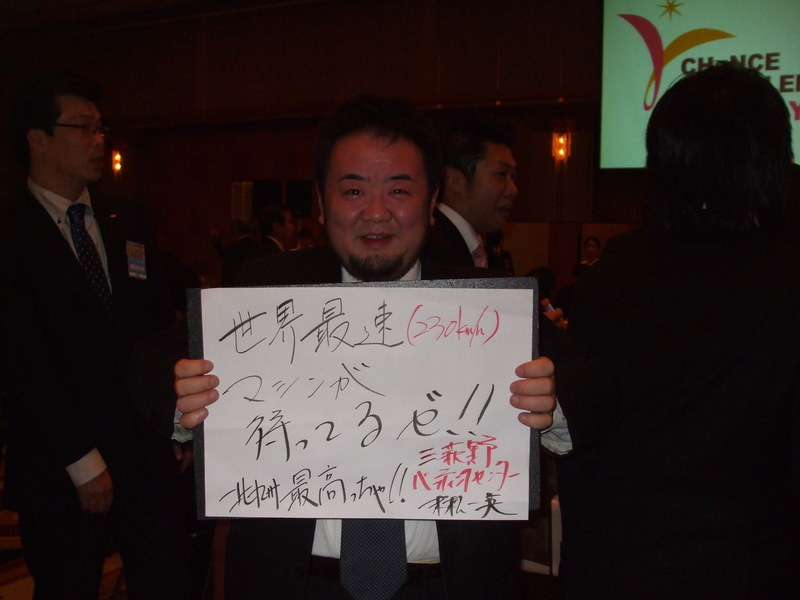 CHANCE
世界最速(230km/h)
マシンが
待ってるぜ!!
北九州最高っちゃ!!
三萩野
バッティングセンター